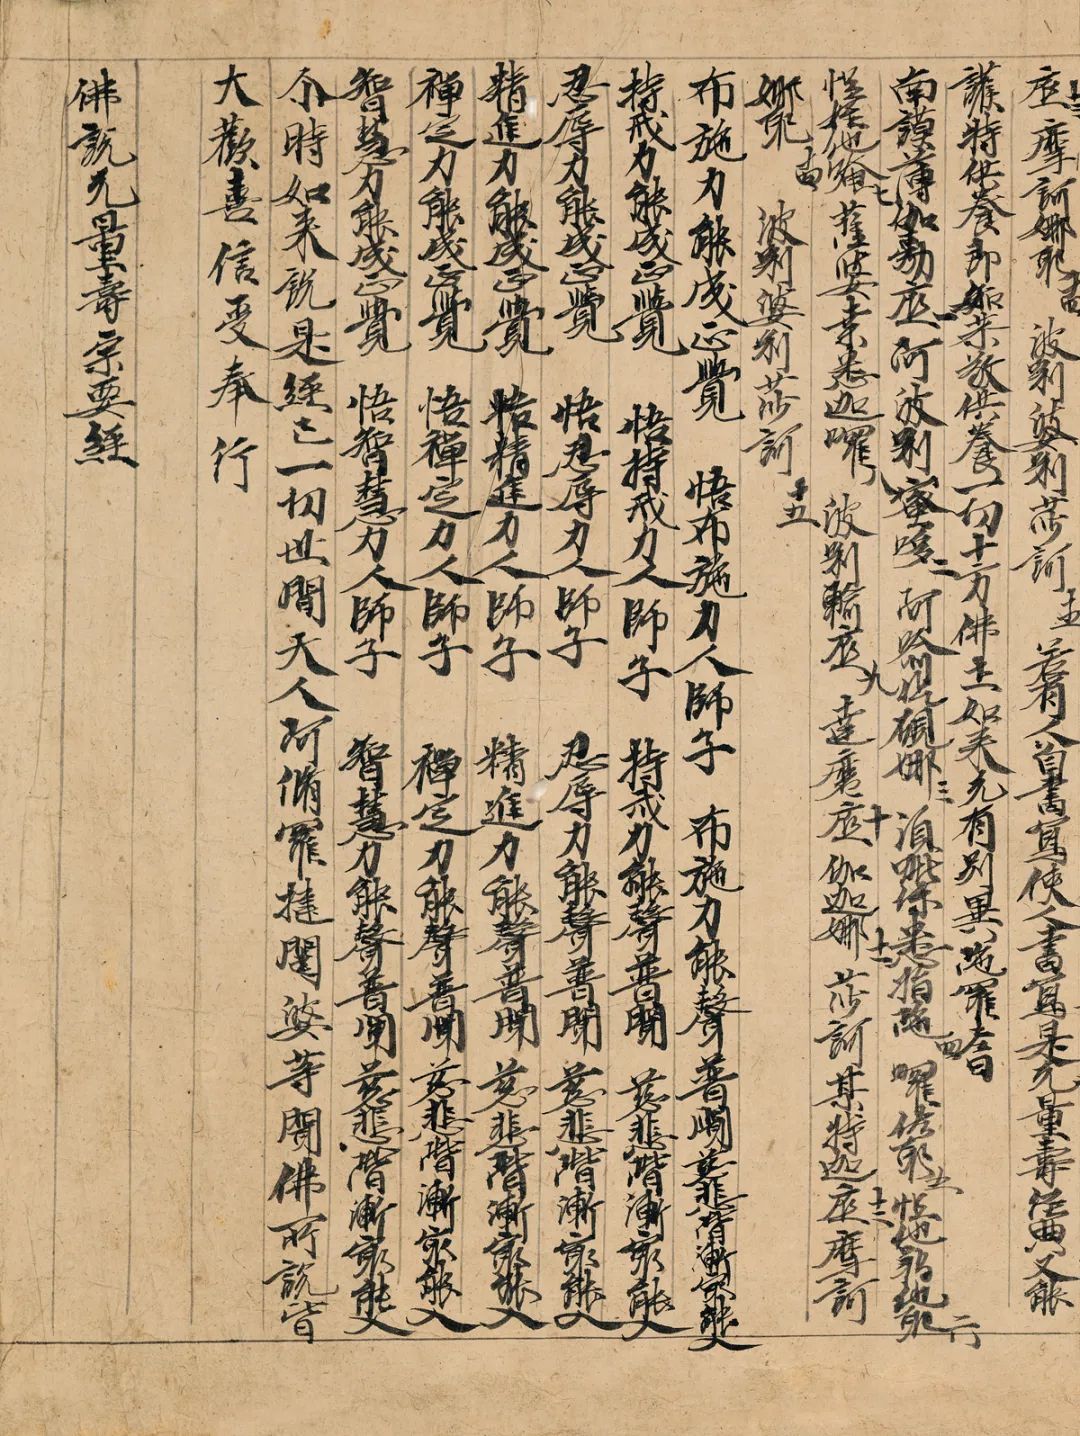 底摩訶娜耶十四 波剁婆剁莎訶十五 若有人自書寫使人書寫是无量壽經典又能
護持供養即如恭敬供養一切十方佛土如來无有別異陁羅尼曰
南謨薄伽勃底一 阿波剁蜜哆二 阿喻紇硯娜三 湏毗你悉指陁四 囉佐耶五 怛他羯他耶六
怛姪他唵七 薩婆桑悉迦囉八 波剁輸底九 達磨底十 伽迦娜十一 莎訶某特迦底十二 摩訶
娜耶十四 波剁婆剁莎訶十五
布施力能成正覺 悟布施力人師子 布施力能聲普聞 慈悲階漸㝡能入
持戒力能成正覺 悟持戒力人師子 持戒力能聲普聞 慈悲階漸㝡能入
忍辱力能成正覺 悟忍辱力人師子 忍辱力能聲普聞 慈悲階漸㝡能入
精進力能成正覺 悟精進力人師子 精進力能聲普聞 慈悲階漸㝡能入
禪定力能成正覺 悟禪定力人師子 禪定力能聲普聞 慈悲階漸㝡能入
智慧力能成正覺 悟智慧力人師子 智慧力能聲普聞 慈悲階漸㝡能入
尒時如来說是經已一切世間天人阿脩羅揵闥婆等聞佛所說皆
大歡喜信受奉行
佛說无量壽宗要經